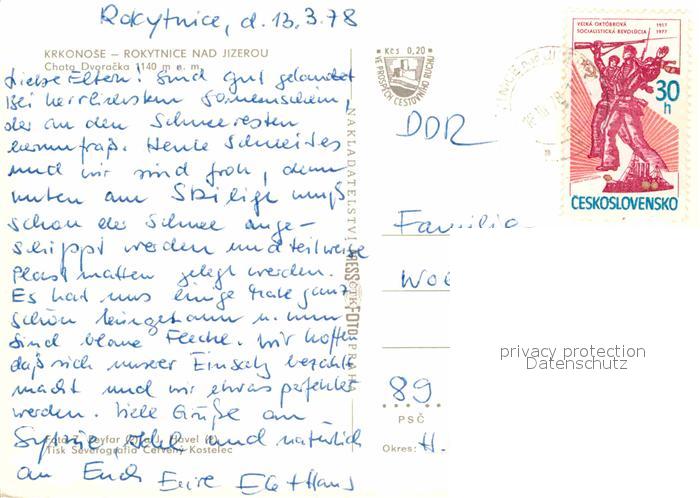 Rokytnice, d. 13.3.78
KRKONOŠE – ROKYTNICE NAD JIZEROU
Chata Dvoračka 1140 m n. m.
Liebe Eltern! Sind gut gelandet
bei herrlichstem Sonnenschein,
der an den Schneeresten
herumfraß. Heute schneit es
und wir sind froh, denn
unten am Skilift muß
schon der Schnee ange-
schippt werden und teilweise
Plastmatten gelegt werden.
Es hat uns einige Male ganz
schön hingehauen u. nun
sind blaue Flecke. Wir hoffen
daß sich unser Einsatz bezahlt
macht und wir etwas perfekter
werden. Viele Grüße an
und natürlich
an Euch Eure
Tisk Severografia Červený Kostelec
NAKLADATELSTVÍ PRESSFOTO PRAHA
Kčs 0,20
VE PROSPĚCH CESTOVNÍHO RUCHU
VELKÁ ŘÍJNOVÁ
SOCIALISTICKÁ REVOLUCE
1917
1977
30
h
ČESKOSLOVENSKO
DDR
Familie
89
PSČ
Okres: H.
privacy protection
Datenschutz